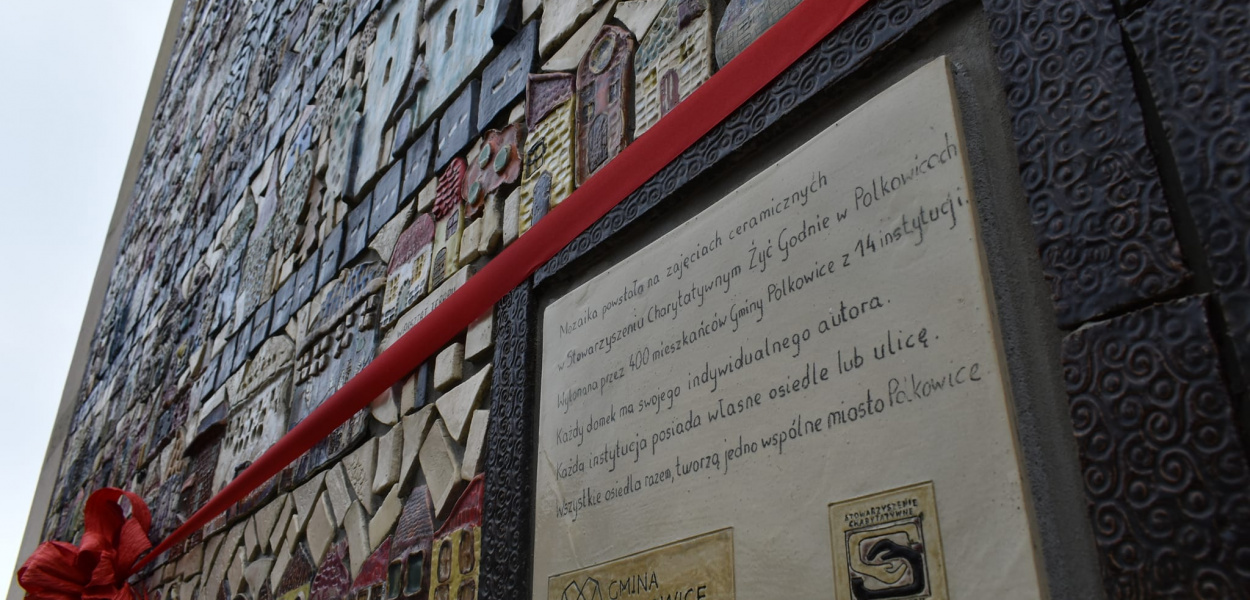 Mozaika powstała na zajęciach ceramicznych
w Stowarzyszeniu Charytatywnym Żyć Godnie w Polkowicach
Wykonana przez 400 mieszkańców Gminy Polkowice z 14 instytucji.
Każdy domek ma swojego indywidualnego autora.
Każda instytucja posiada własne osiedle lub ulicę.
Wszystkie osiedla razem, tworzą jedno wspólne miasto Polkowice
GMINA
STOWARZYSZENIE
CHARYTATYWNE